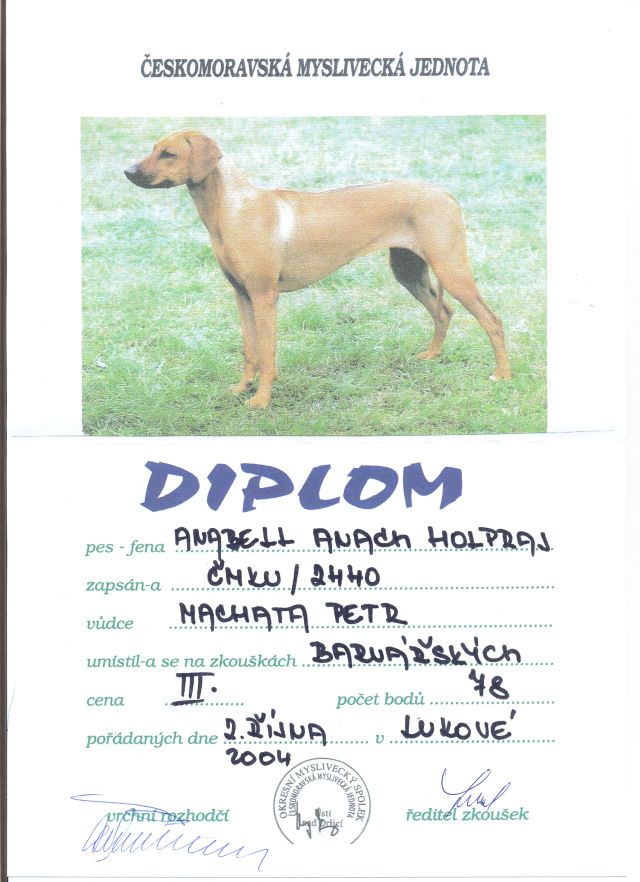 ČESKOMORAVSKÁ MYSLIVECKÁ JEDNOTA
DIPLOM
pes - fena ANABELL ANACH HOLPRAJ
zapsán-a ČMKU / 2440
vůdce MACHATA PETR
umístil-a se na zkouškách BARVÁŘSKÝCH
cena III. počet bodů 78
pořádaných dne 2. ŘÍJNA v LUKOVÉ
2004
OKRESNÍ MYSLIVECKÝ SPOLEK
ČESKOMORAVSKÁ MYSLIVECKÁ JEDNOTA
Ústí
nad Orlicí
vrchní rozhodčí ředitel zkoušek